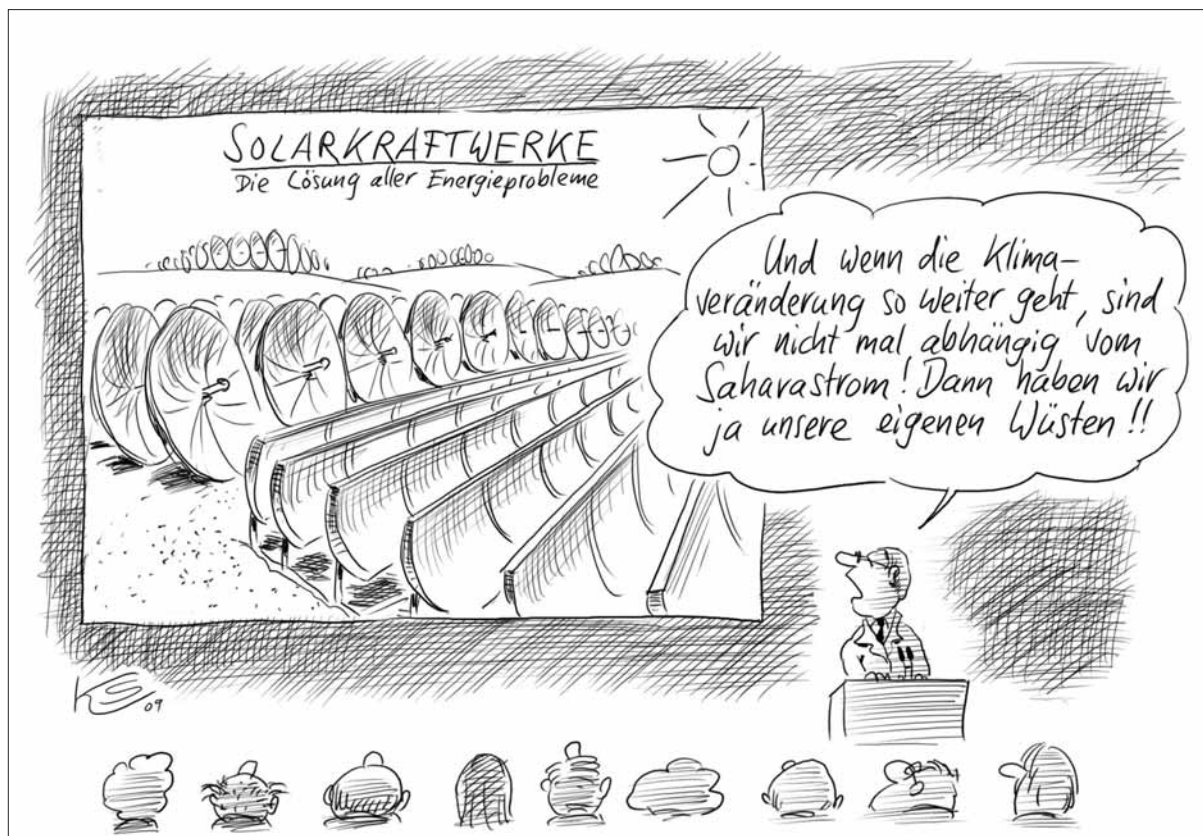 SOLARKRAFTWERKE
Die Lösung aller Energieprobleme
Und wenn die Klima-
veränderung so weiter geht, sind
wir nicht mal abhängig vom
Saharastrom! Dann haben wir
ja unsere eigenen Wüsten!!
09